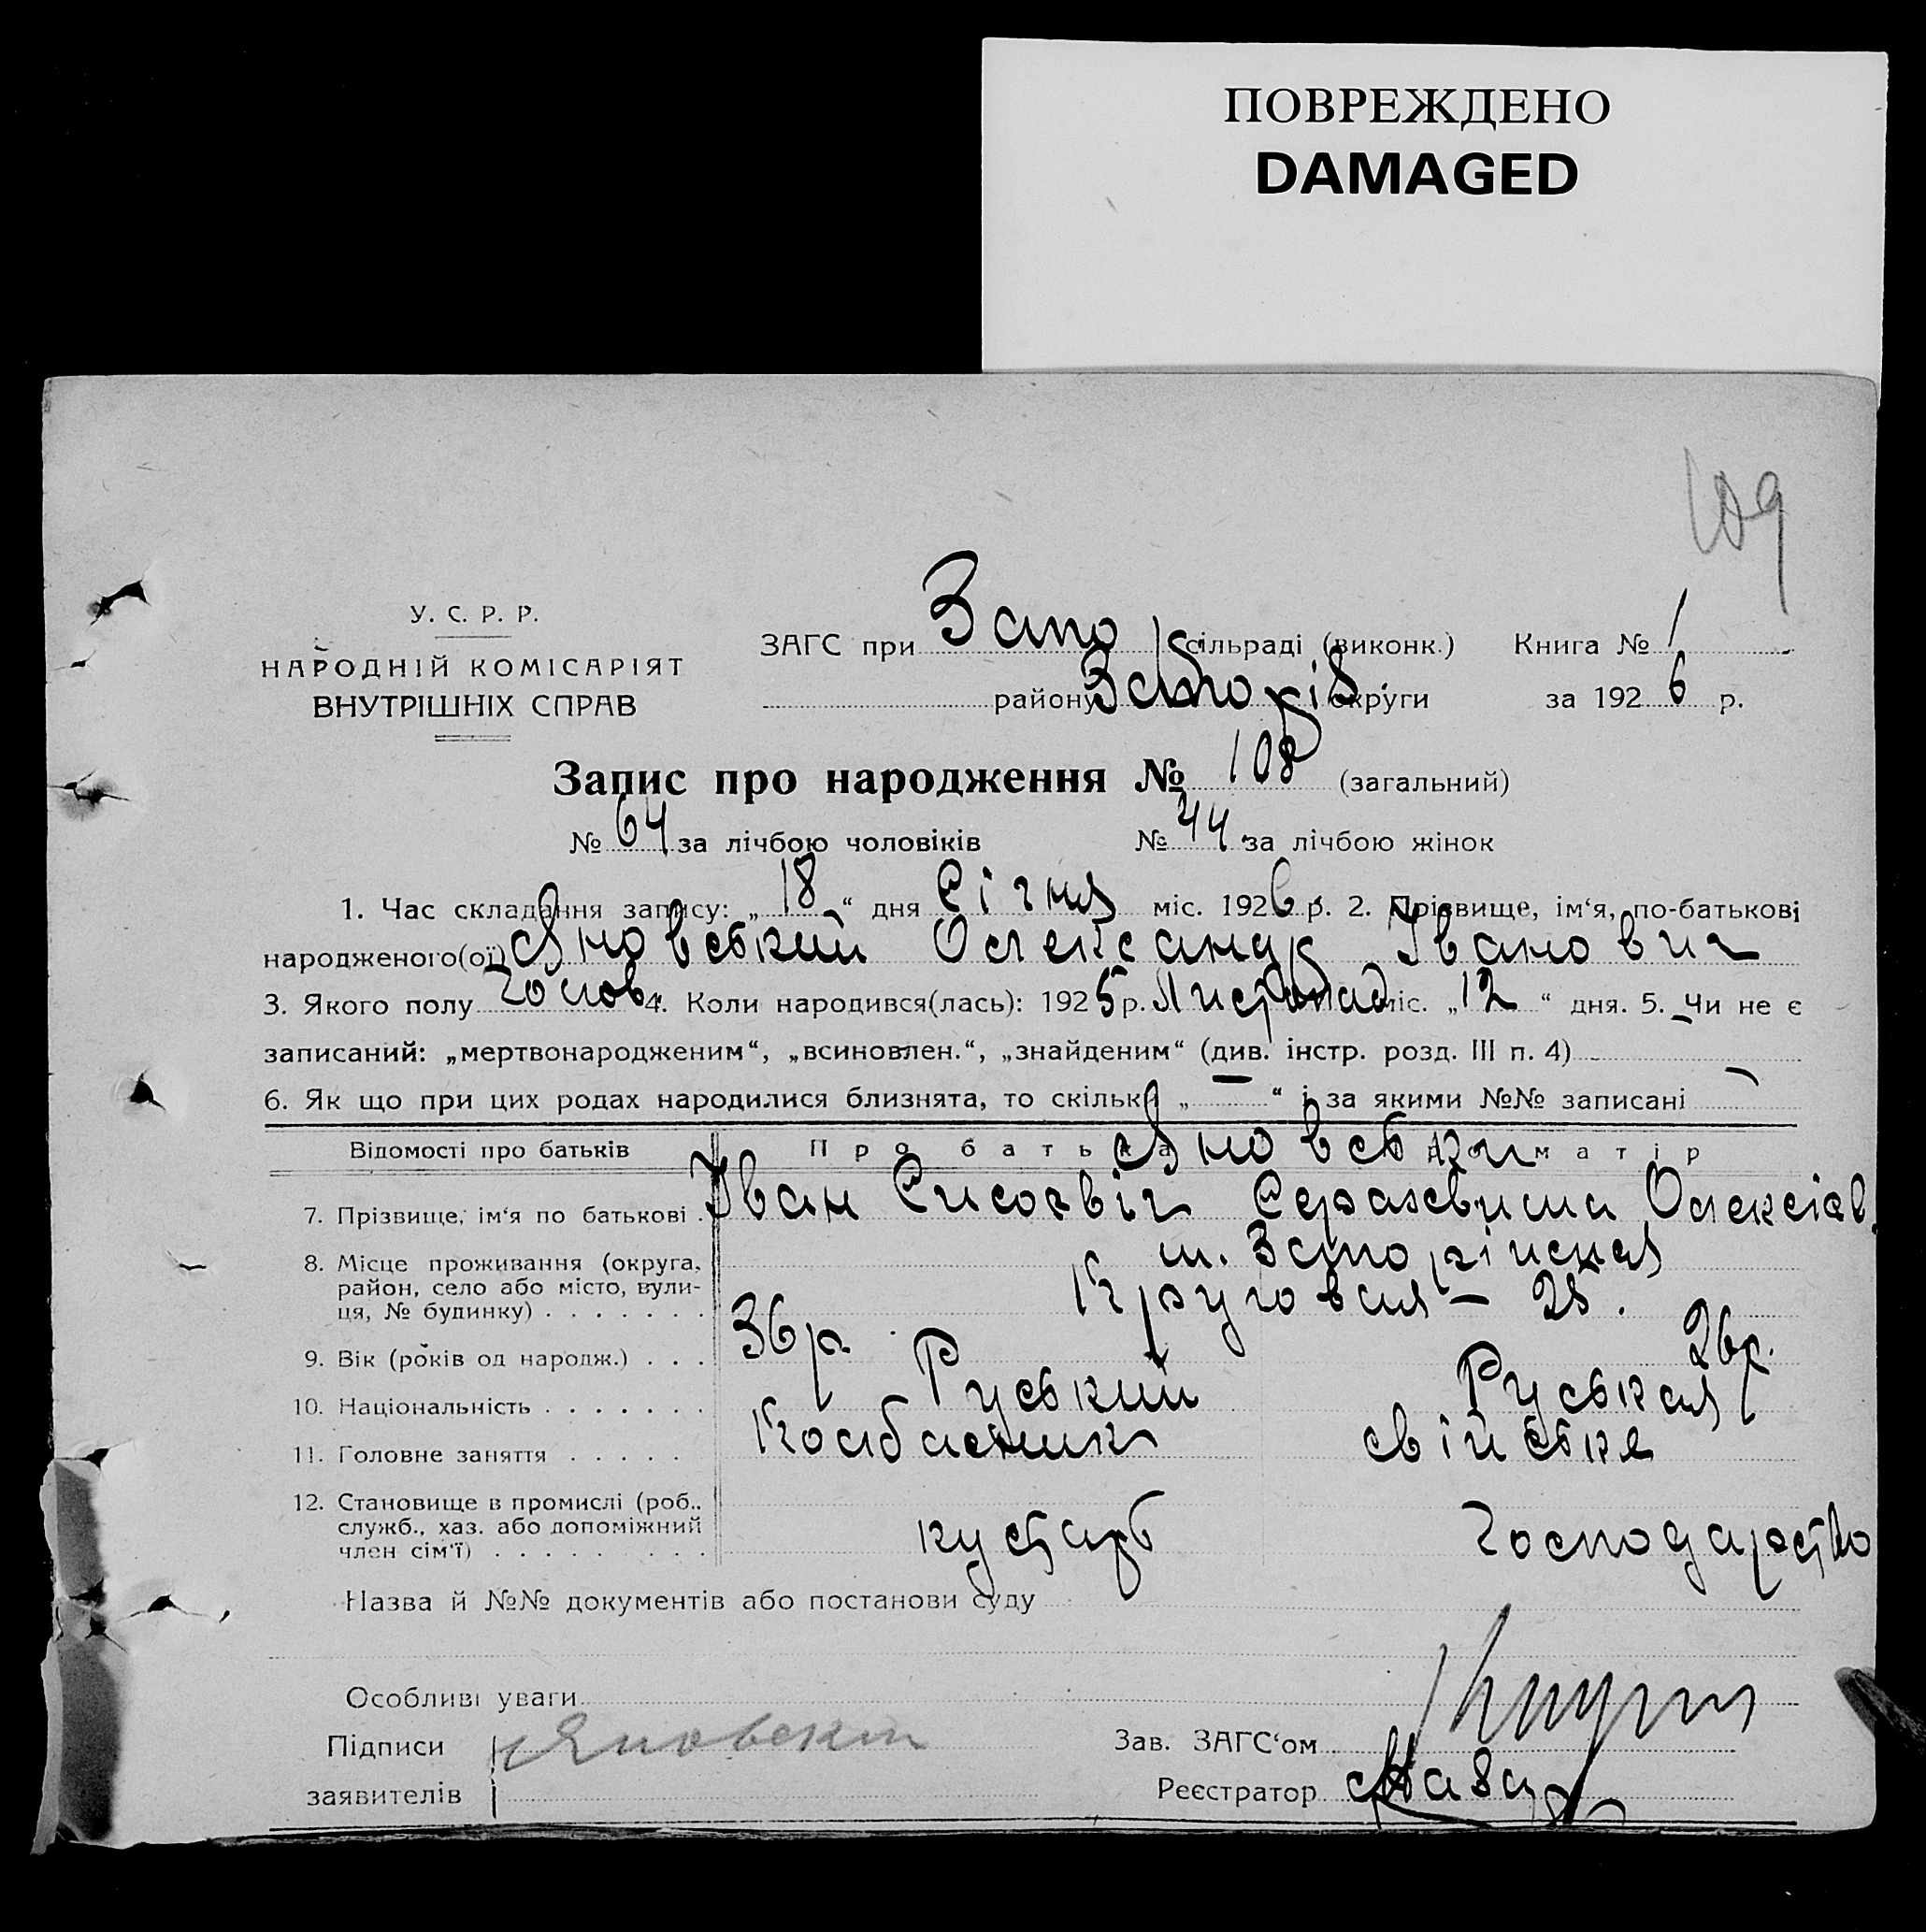 ПОВРЕЖДЕНО
DAMAGED
109
У. С. Р. Р.
НАРОДНІЙ КОМІСАРІЯТ
ВНУТРІШНІХ СПРАВ
ЗАГС при Запо сільраді (виконк.) Книга № 1
району Запорі округи за 1926 р.
Запис про народження № 108 (загальний)
№ 64 за лічбою чоловіків № 44 за лічбою жінок
1. Час складання запису: „ 18 “ дня Січня міс. 1926 р. 2. Прізвище, ім‘я, по-батькові
народженого(ої) Яновський Олександр Іванович
3. Якого полу Голов. 4. Коли народився(лась): 1925 р. Листопад міс. „ 12 “ дня. 5. Чи не є
записаний: „мертвонародженим“, „всиновлен.“, „знайденим“ (див. інстр. розд. III п. 4) —
6. Як що при цих родах народилися близнята, то скільки „ — “ і за якими №№ записані —
Відомості про батьків Про батька Про матір
Яновськи
7. Прізвище, ім‘я по батькові . Іван Олексієв.
8. Місце проживання (округа,
район, село або місто, вули-
ця, № будинку) . . . . . . . Кругова́я — 25.
9. Вік (років од народж.) . . . 36 р. 26 р.
10. Національність . . . . . . . Руський Руськая
11. Головне заняття . . . . . Колбасник свійське
12. Становище в промислі (роб.,
служб., хаз. або допоміжний
член сім‘ї) . . . . . . . . . кустарь господарство
Назва й №№ документів або постанови суду
Особливі уваги
Підписи Яновский
заявителів
Зав. ЗАГС‘ом
Реєстратор